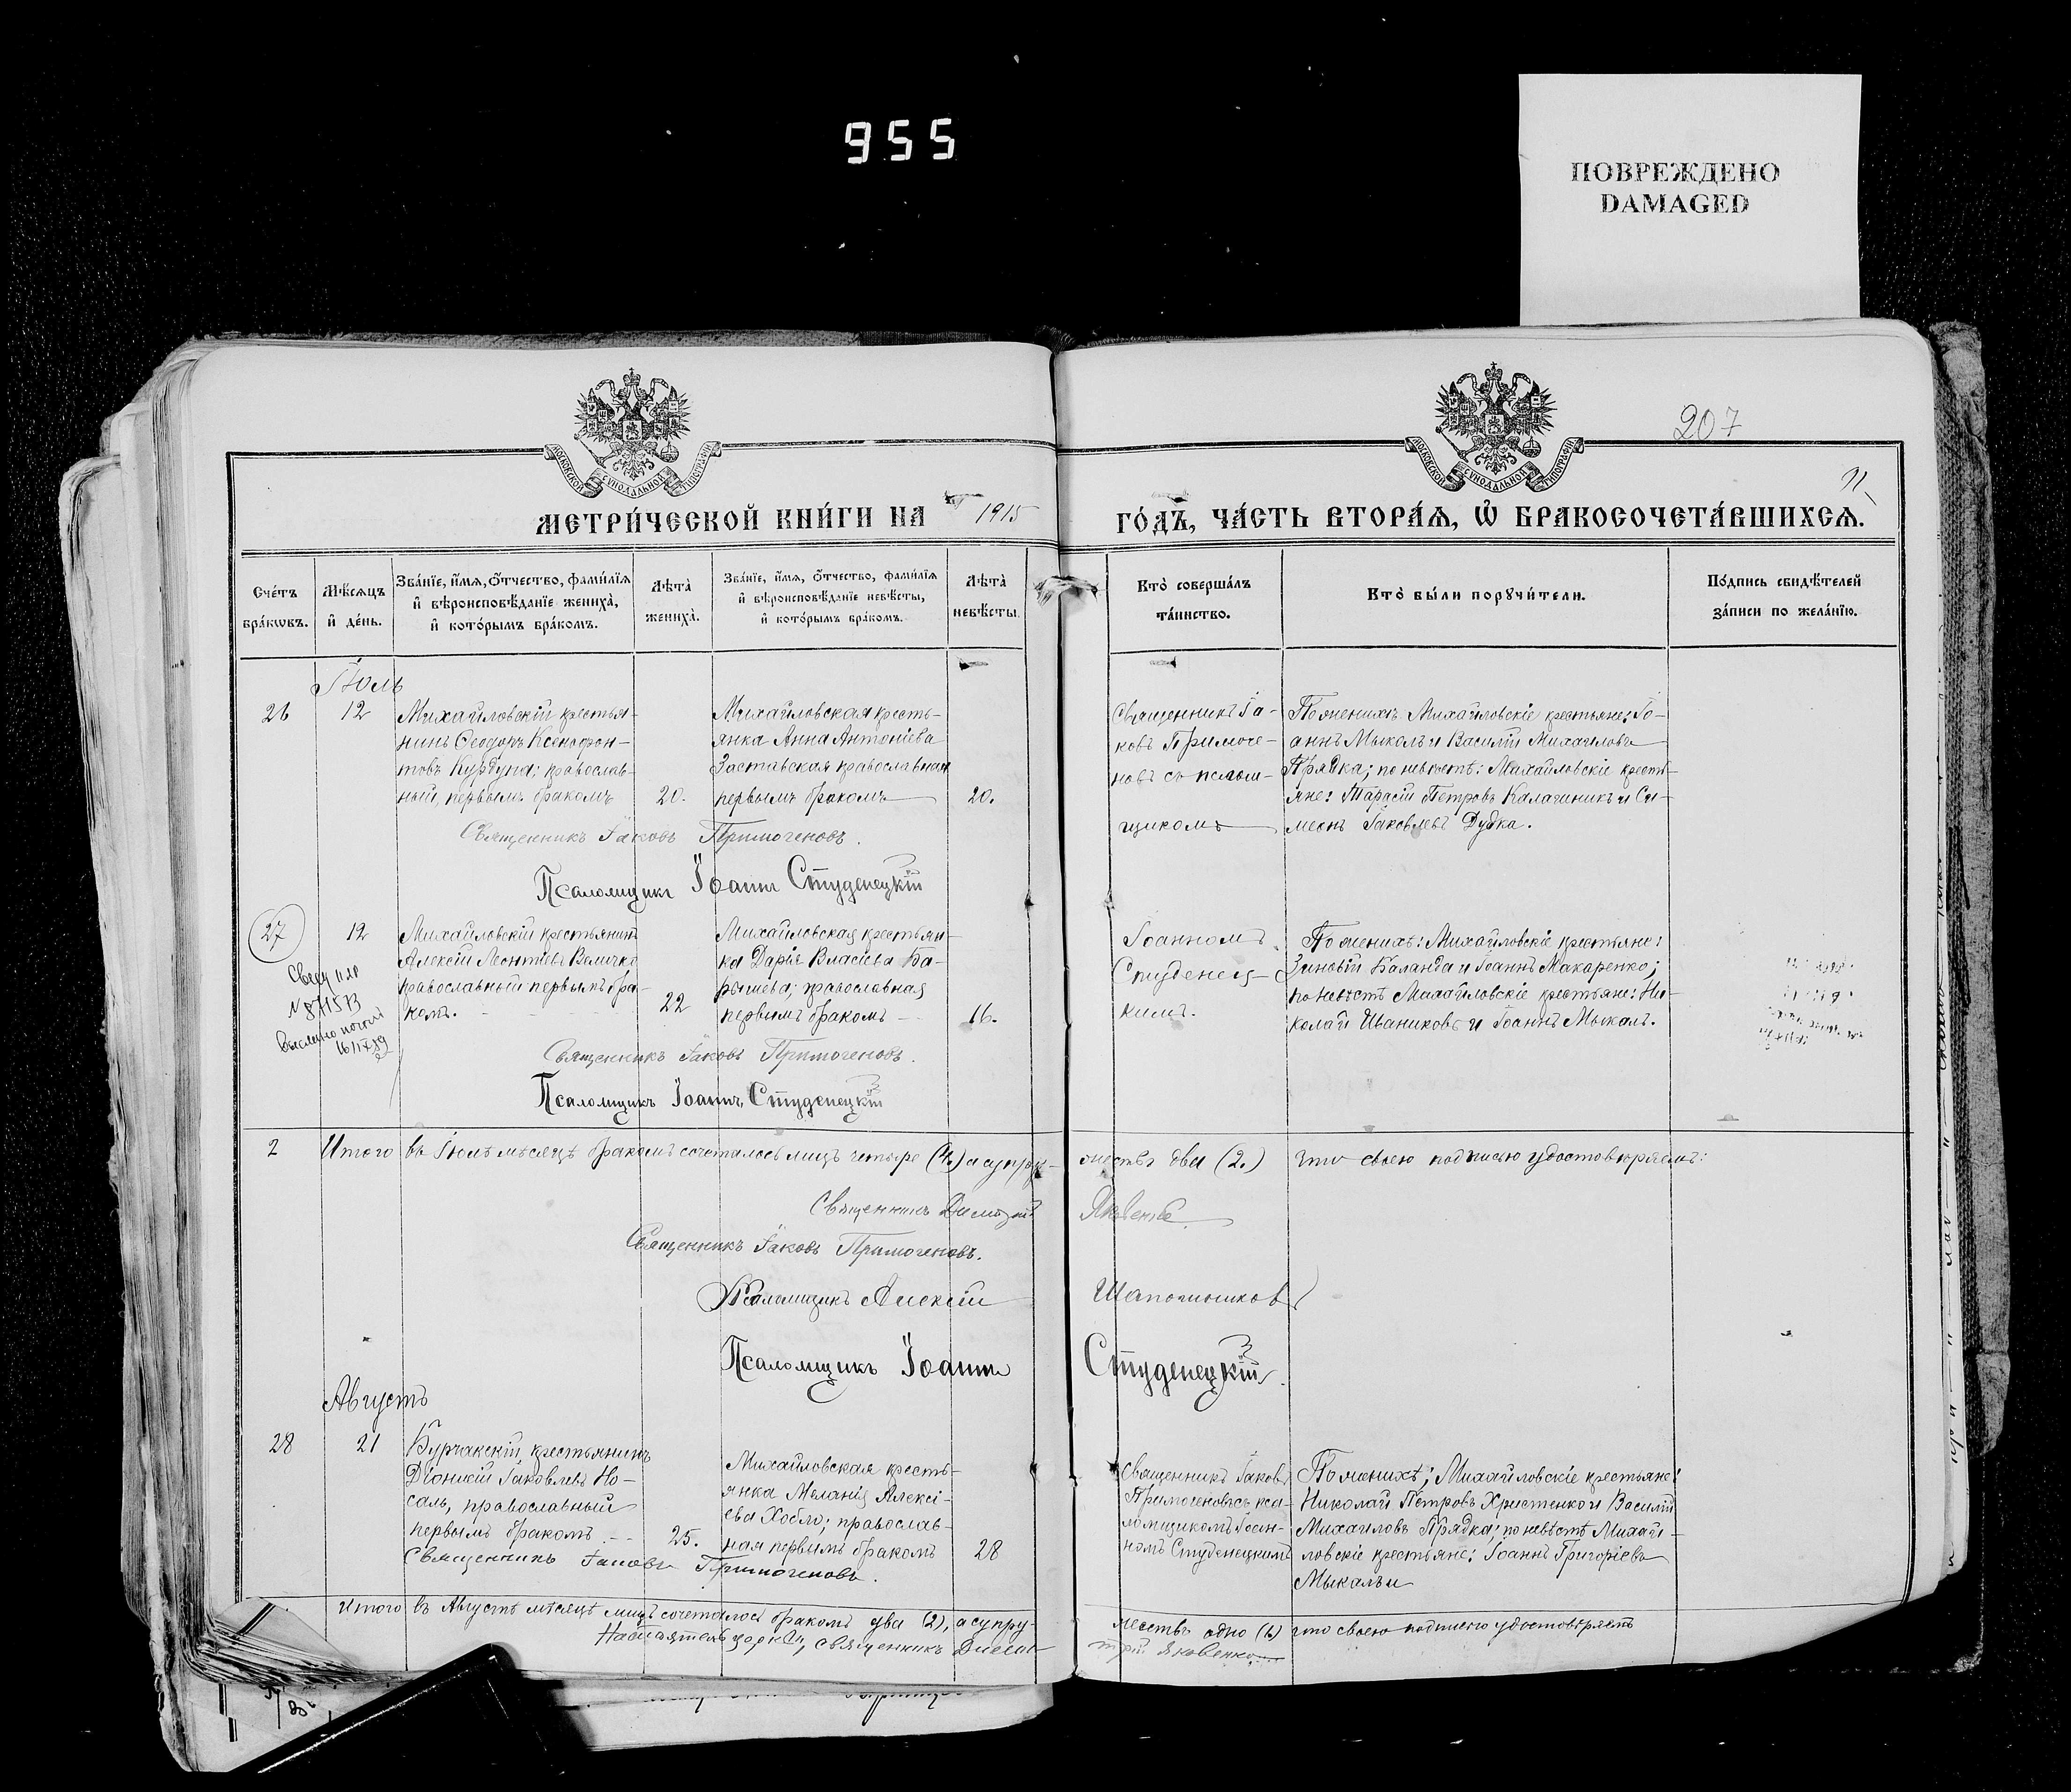 955
ПОВРЕЖДЕНО
DAMAGED
207
11
МОСКОВСКОЙ СУНОДАЛЬНОЙ ТИПОГРАФІИ
МОСКОВСКОЙ СУНОДАЛЬНОЙ ТИПОГРАФІИ
МЕТРИ́ЧЕСКОЙ КНИ́ГИ НА 1915 ГО́ДЪ, ЧА́СТЬ ВТОРА́Ѧ, Ѡ҆ БРАКОСОЧЕТА́ВШИХСѦ.
Сче́тъ
бра́кѡвъ.
Мѣ́сѧцъ
и҆ де́нь.
Зва́нїе, и҆́мѧ, о҆́тчество, фами́лїѧ
и҆ вѣроисповѣ́данїе жениха̀,
и҆ кото́рымъ бра́комъ.
Лѣта̀
жениха̀.
Зва́нїе, и҆́мѧ, о҆́тчество, фами́лїѧ
и҆ вѣроисповѣ́данїе невѣ́сты,
и҆ кото́рымъ бра́комъ.
Лѣта̀
невѣ́сты.
Кто̀ соверша́лъ
та́инство.
Кто̀ бы́ли порꙋчи́тели.
По́дпись свидѣ́телей
за́писи по жела́нїю.
Іюль
26
12
Михайловскій крестья-
нинъ Ѳеодоръ Ксенофон-
товъ Курдупа; православ-
ный, первымъ бракомъ
20.
Михайловская кресть-
янка Анна Антоніева
Заставская православная
первымъ бракомъ
20.
Священникъ Іа-
ковъ Примоге-
новъ съ псалом-
щикомъ
По женихѣ Михайловскіе крестьяне: Іо-
аннъ Мыкалъ и Василій Михаиловъ
Прядка; по невѣстѣ: Михайловскіе кресть-
яне: Тарасій Петровъ Калачникъ и Си-
меонъ Іаковлевъ Дудка.
Священникъ Іаковъ Примогеновъ.
Псаломщикъ Іоаннъ Студенецкій
27
12
Михайловскій крестьянинъ
Алексій Леонтіевъ Величко
православный первымъ бра-
комъ.
22
Михайловская крестьян-
ка Дарія Власіева Ба-
рышева; православная
первымъ бракомъ
16.
Іоанномъ
Студенец-
кимъ.
По женихѣ: Михайловскіе крестьяне:
Зиновій Баланда и Іоаннъ Макаренко;
по невѣстѣ Михайловскіе крестьяне: Ни-
колай Иваниковъ и Іоаннъ Мыкалъ.
Священникъ Іаковъ Примогеновъ.
Псаломщикъ Іоаннъ Студенецкій
2 Итого въ Іюлѣ мѣсяцѣ бракомъ сочеталось лицъ четыре (4.) а супру- жествъ два (2.) что своею подписью удостовѣряемъ:
Священникъ Димитрій Яковенко
Священникъ Іаковъ Примогеновъ.
Псаломщикъ Алексій Шапошниковъ
Псаломщикъ Іоаннъ Студенецкій
Августъ
28
21
Бурчакскій, крестьянинъ
Діонисій Іаковлевъ Но-
саль, православный
первымъ бракомъ
25.
Михайловская кресть-
янка Меланія Алексі-
ева Хобло; православ-
ная первымъ бракомъ
28
Священникъ Іаковъ
Примогеновъ съ пса-
ломщикомъ Іоан-
номъ Студенецкимъ
По женихѣ; Михайловскіе крестьяне:
Николай Петровъ Христенко и Василій
Михаиловъ Прядка; по невѣстѣ Михай-
ловскіе крестьяне: Іоаннъ Григоріевъ
Мыкалъ и
Священникъ Іаковъ Примогеновъ.
Итого въ Августѣ мѣсяцѣ лицъ сочеталось бракомъ два (2), а супру- жествъ одно (1) что своею подписью удостовѣряетъ
Настоятель церкви, священникъ Димитрій Яковенко